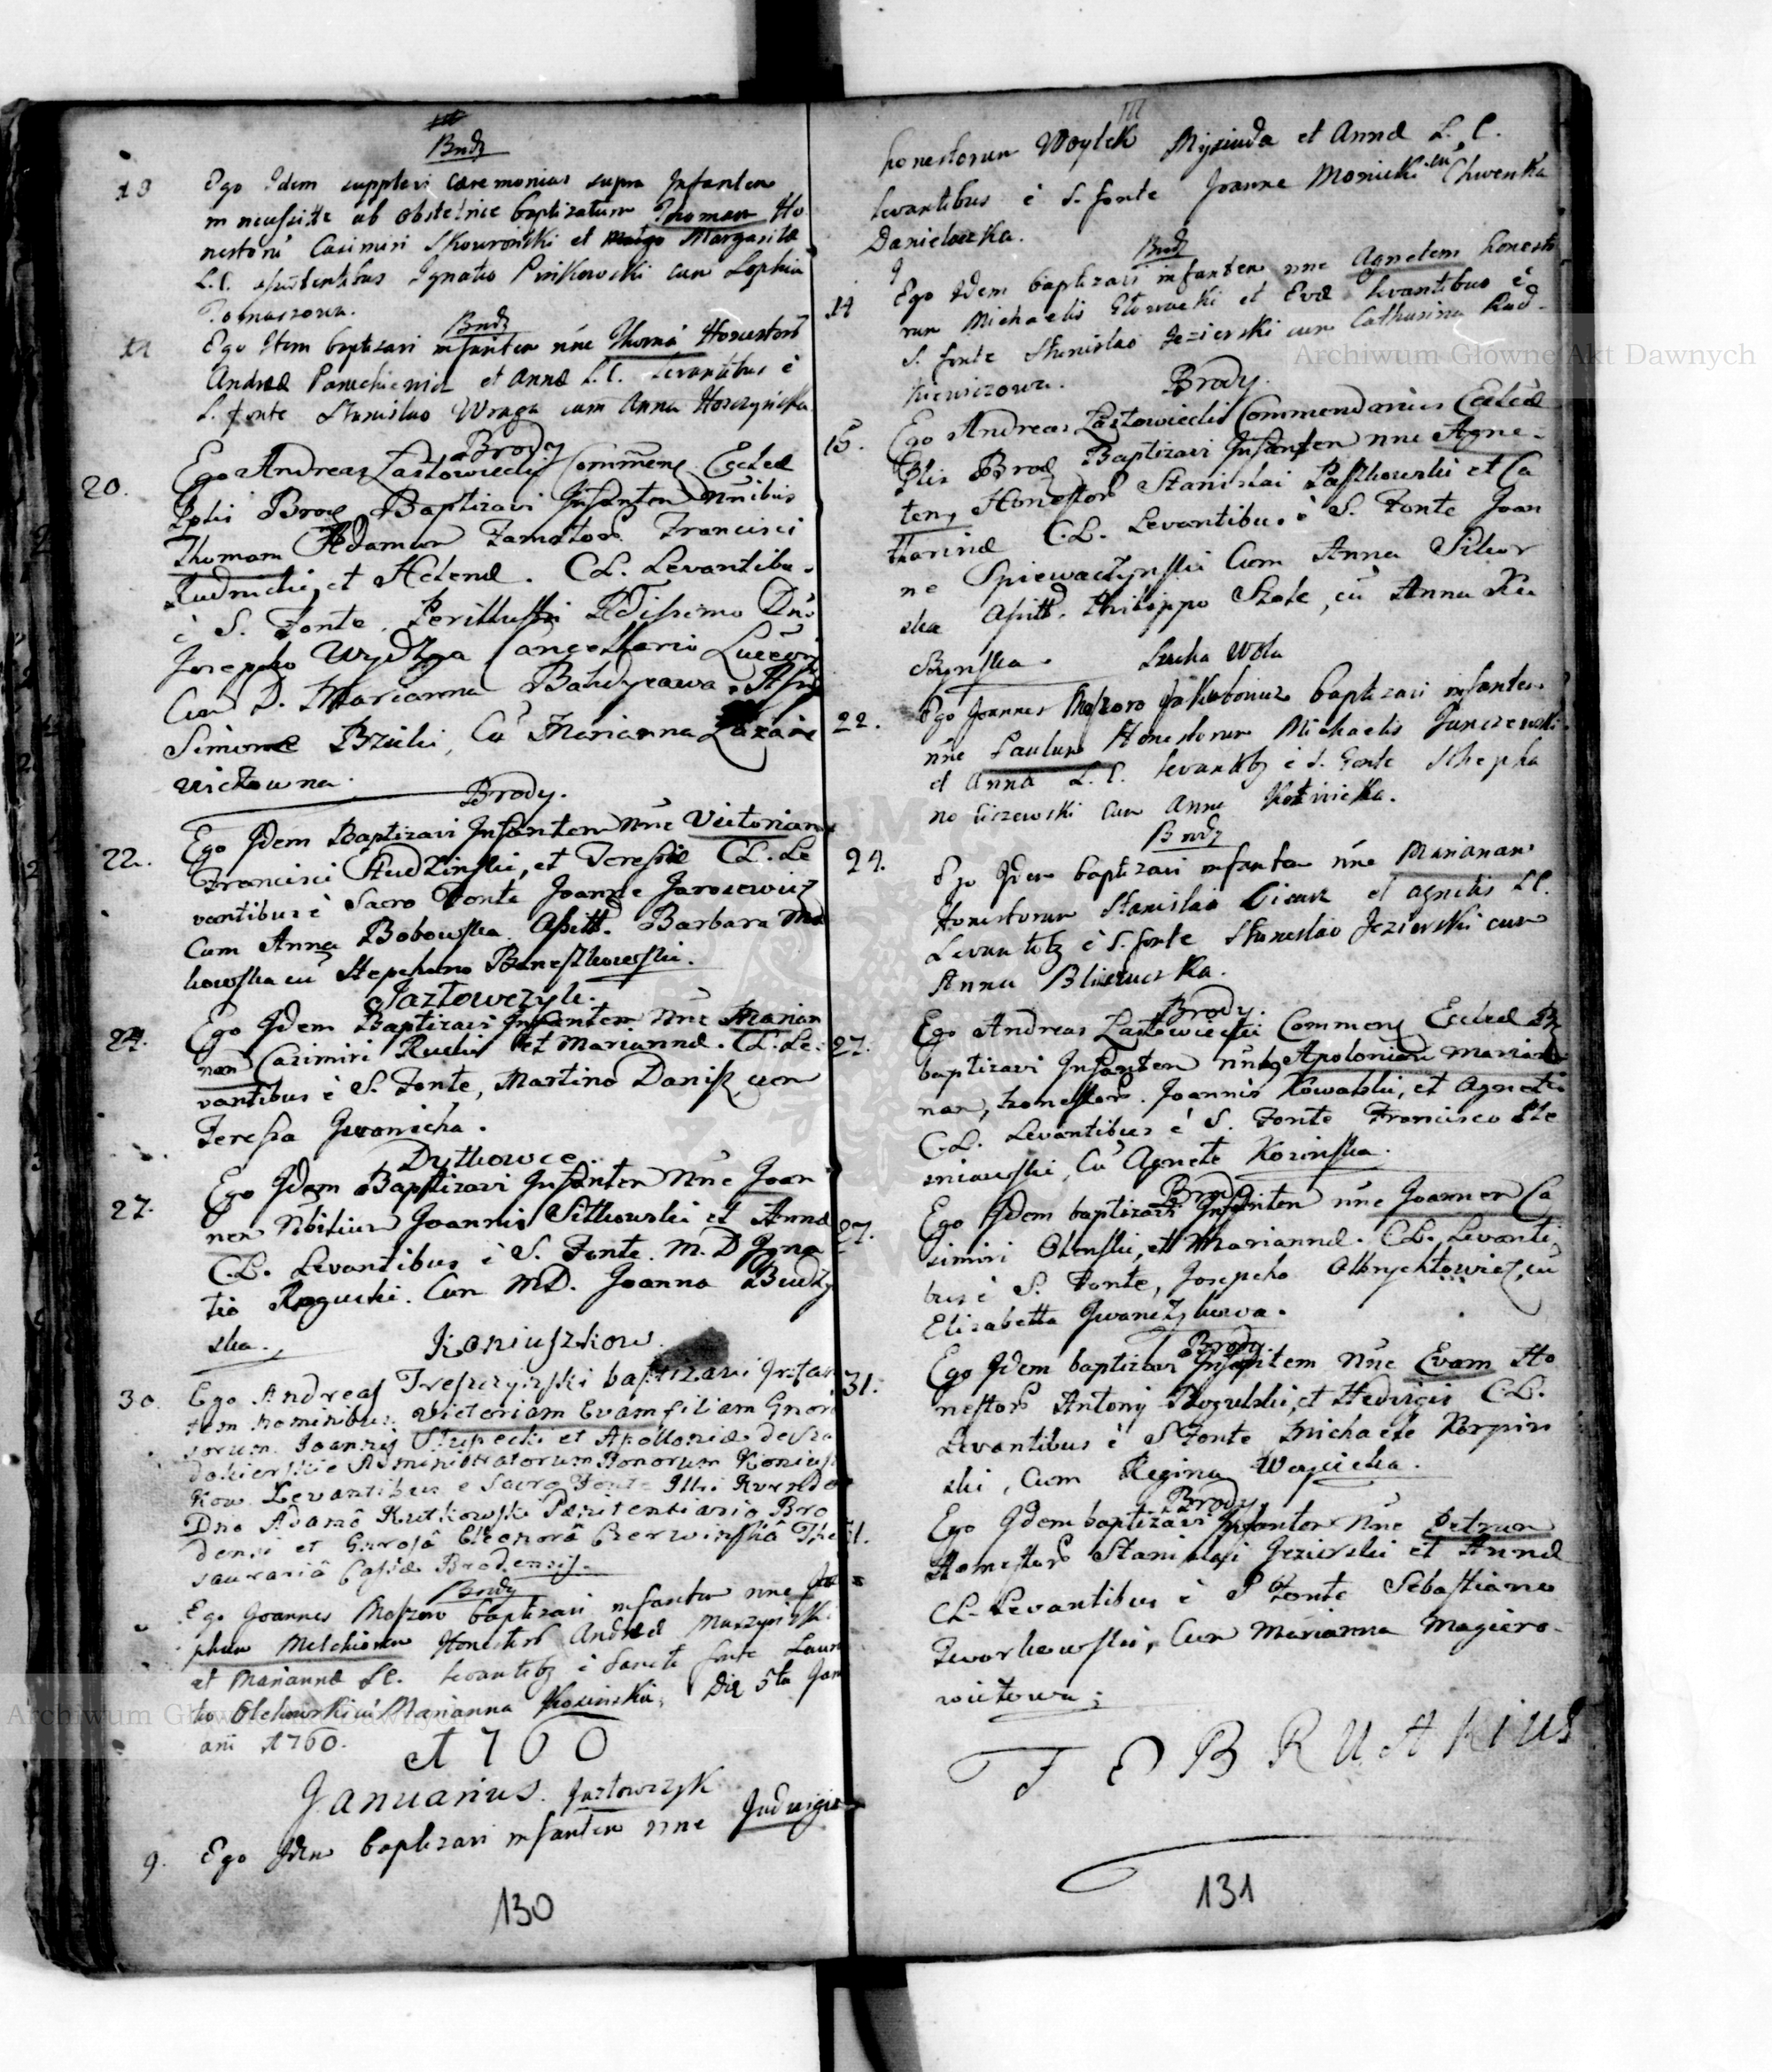 Brody
18 Ego Idem supplevi caeremonias supra Infantem
in necessitte ab obstetrice baptizatum Thomam Ho
nestorū Casimiri Skowroński et Margarita
L.C. assistentibus Ignatio Pinkowski cum Sophia
Tomaszowa.
Brody
Ego Idem baptizavi infantem nne Thomā Honestorū
Andreae et Annae L.C. Levantibus è
S. fonte Stanislao Wraga cum Anna
Brody
20. Ego Andreas Zastowiecki Commend Eccl̄ae
Pplis Brod Baptizavi Infantem Nnibus
Thomam Adamum Famator Francisci
Rudnicki, et Helenae. CL. Levantibus
è S. Fonte. Perillustri Rdissimo Dn̄o
Josepho Wydzga Cancellario Luceori
Cum D. Marianna
Simone Bzicki, Cū Marianna Lazaro
wiczowna.
Brody.
22. Ego Idem Baptizavi Infantem Nne Victoriam
Francisci Studzinski, et Teresiae CL. Le
vantibus è Sacro Fonte Joanne Jarosewicz
Cum Anna Bobowska. Assitt. Barbara Ma
kowska cū Stephano Baneszkowski.
Jazłowczyk.
24. Ego Idem Baptizavi Infantem Nne Marian
nam Casimiri Rudki et Mariannae. CL. Le
vantibus è S. Fonte, Martino Danisz, cum
Teressa Iwanicha.
Dytkowce.
27. Ego Idem Baptizavi Infantem Nne Joan
nem Nobilium Joannis Sitkowski et Annae
C.L. Levantibus è S. Fonte. M. D Igna
tio Roguski. Cum MD. Joanna Budzy
ska.
Koniuszkow.
30. Ego Andreas Treszczyński baptizavi Infan
tem nominibus Victoriam Evam filiam Gnoro
sorum Joannis Slupecki et Apolloniae de
Administratorum Bonorum Koniusz
kow. Levantibus e Sacro Fonte Illi Rvrendo
Dno Adamō Rutkowski Paenitentiario Bro
densi et Gnrosā Eleonorā Czerwinskā The
saurariā Cassae Brodensis.
Brody
Ego Joannes Moszoro baptizavi infantem nne Jose
phum Melchiorem Honestorū Andreae Muszyński
et Mariannae LC. levantib9 è sancto fonte Lauren
tio Olchowski cū Marianna Kosinska, Die 5ta Jan
ani 1760.
1760
Januarius. Jazłowczyk
9. Ego Idem baptizavi infantem nne Judvigis
130
honestorum Woytek et Annae L. C.
levantibus è S. fonte Joanne Monicki cū Chwenka
Danielowka.
Brody
14 Ego Idem baptizavi infantem nne Agnetem honesto
rum Michaelis Głowacki et Evae levantibus è
S. fonte Stanislao Jezierski cum Catharina Rad
kiewiczowa.
Brody.
15. Ego Andreas Zastowiecki Commendarius Eccl̄ae
Pplis Brod Baptizavi Infantem nne Agne-
tem, Honestor Stanislai Paszkowski et Ca
tharinae C.L. Levantibus è S. Fonte Joan
ne Spiewaczynski Cum Anna Sikor
ska Assitt. Philippo Szole, cū Anna Ku
czynska.
Sucha Wola
22. Ego Joannes Moszoro Jakubowicz baptizavi infantem
nne Paulum Honestorum Michaelis Junczewski
et Anna L.C. levantib9 è S. Fonte Stepha
no Ciszewski cum Anna Kotnicka.
Brody
24. Ego Idem baptizavi infantem nne Mariannam
Honestorum Stanislai et Agnetis LC.
Levantib9 è S. fonte Stanislao Jezierski cum
Anna
Brody.
27. Ego Andreas Zastowiecki Commend Eccl̄ae Br
baptizavi Infantem nnb9 Apoloniam Marian
nam, honestor. Joannis Kowalski, et Agnetis
C.L. Levantibus è S. Fonte Francisco Ste
miawski, Cū Agnete Kozinska.
Brody
27. Ego Idem baptizavi Infantem nne Joannem Ca
simiri Olenski, et Mariannae. C.L. Levanti
bus è S. Fonte, Josepho Olbrychtowicz, cū
Elizabetta Iwanczykowa.
Brody.
31. Ego Idem baptizavi Infantem Nne Evam Ho
nestor Antonij Rogulski, et Hedvigis C.L.
Levantibus è S Fonte Michaele Karpin
ski, Cum Regina Woycicka.
Brody
31. Ego Idem baptizavi Infantem Nne Petrum
Honestor Stanislai Jezierski et Annae
CL. Levantibus è S Fonte Sebastiano
Tworkowski, Cum Marianna Magiero-
wiczowa.
FEBRUARIUS
131
Archiwum Główne Akt Dawnych
Archiwum Główne Akt Dawnych